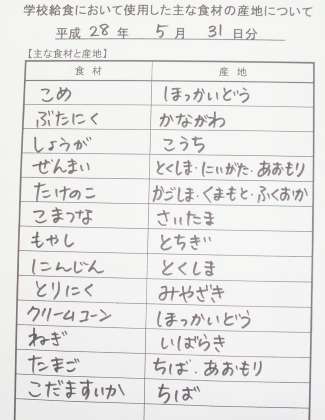 学校給食において使用した主な食材の産地について
平成 28 年 5 月 31 日分
【主な食材と産地】
食材 産地
こめ ほっかいどう
ぶたにく かながわ
しょうが こうち
ぜんまい とくしま・にいがた・あおもり
たけのこ かごしま・くまもと・ふくおか
こまつな さいたま
もやし とちぎ
にんじん とくしま
とり にく みやざき
クリームコーン ほっかいどう
ねぎ いばらき
たまご ちば・あおもり
こだますいか ちば